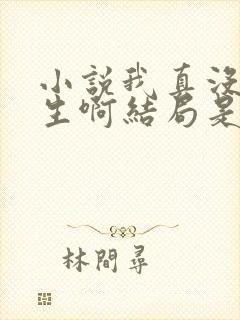 小説我真沒
生啊結局是
林間尋